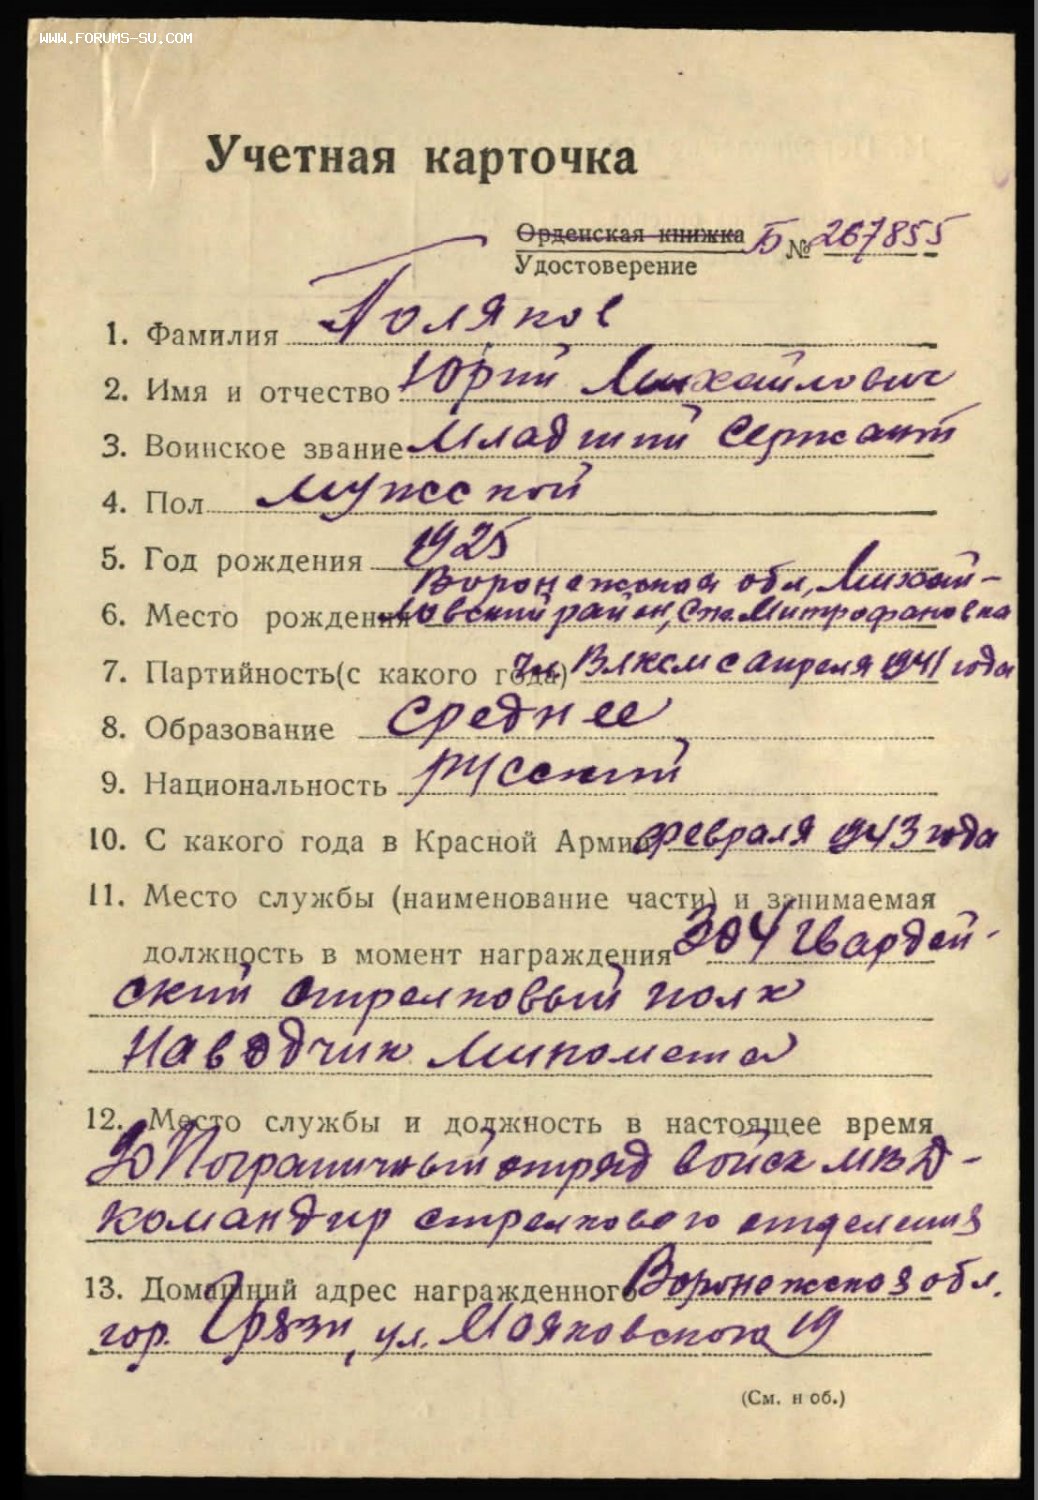 WWW.FORUMS-SU.COM
Учетная карточка
Орденская книжка
Удостоверение Б № 267855
1. Фамилия Поляков
2. Имя и отчество Юрий Михайлович
3. Воинское звание Младший Сержант
4. Пол мужской
5. Год рождения 1925
Воронежская обл, Михай-
6. Место рождения ловский район, с. Митрофановка
7. Партийность(с какого года) чл ВЛКСМ с апреля 1941 года
8. Образование среднее
9. Национальность русский
10. С какого года в Красной Армии февраля 1943 года
11. Место службы (наименование части) и занимаемая
должность в момент награждения 304 Гвардей-
ский стрелковый полк
Наводчик миномета
12. Место службы и должность в настоящее время
Пограничный отряд войск МВД -
командир стрелкового отделения
13. Домашний адрес награжденного Воронежская обл.
гор. Грязи, ул. Маяковского 19
(См. н об.)